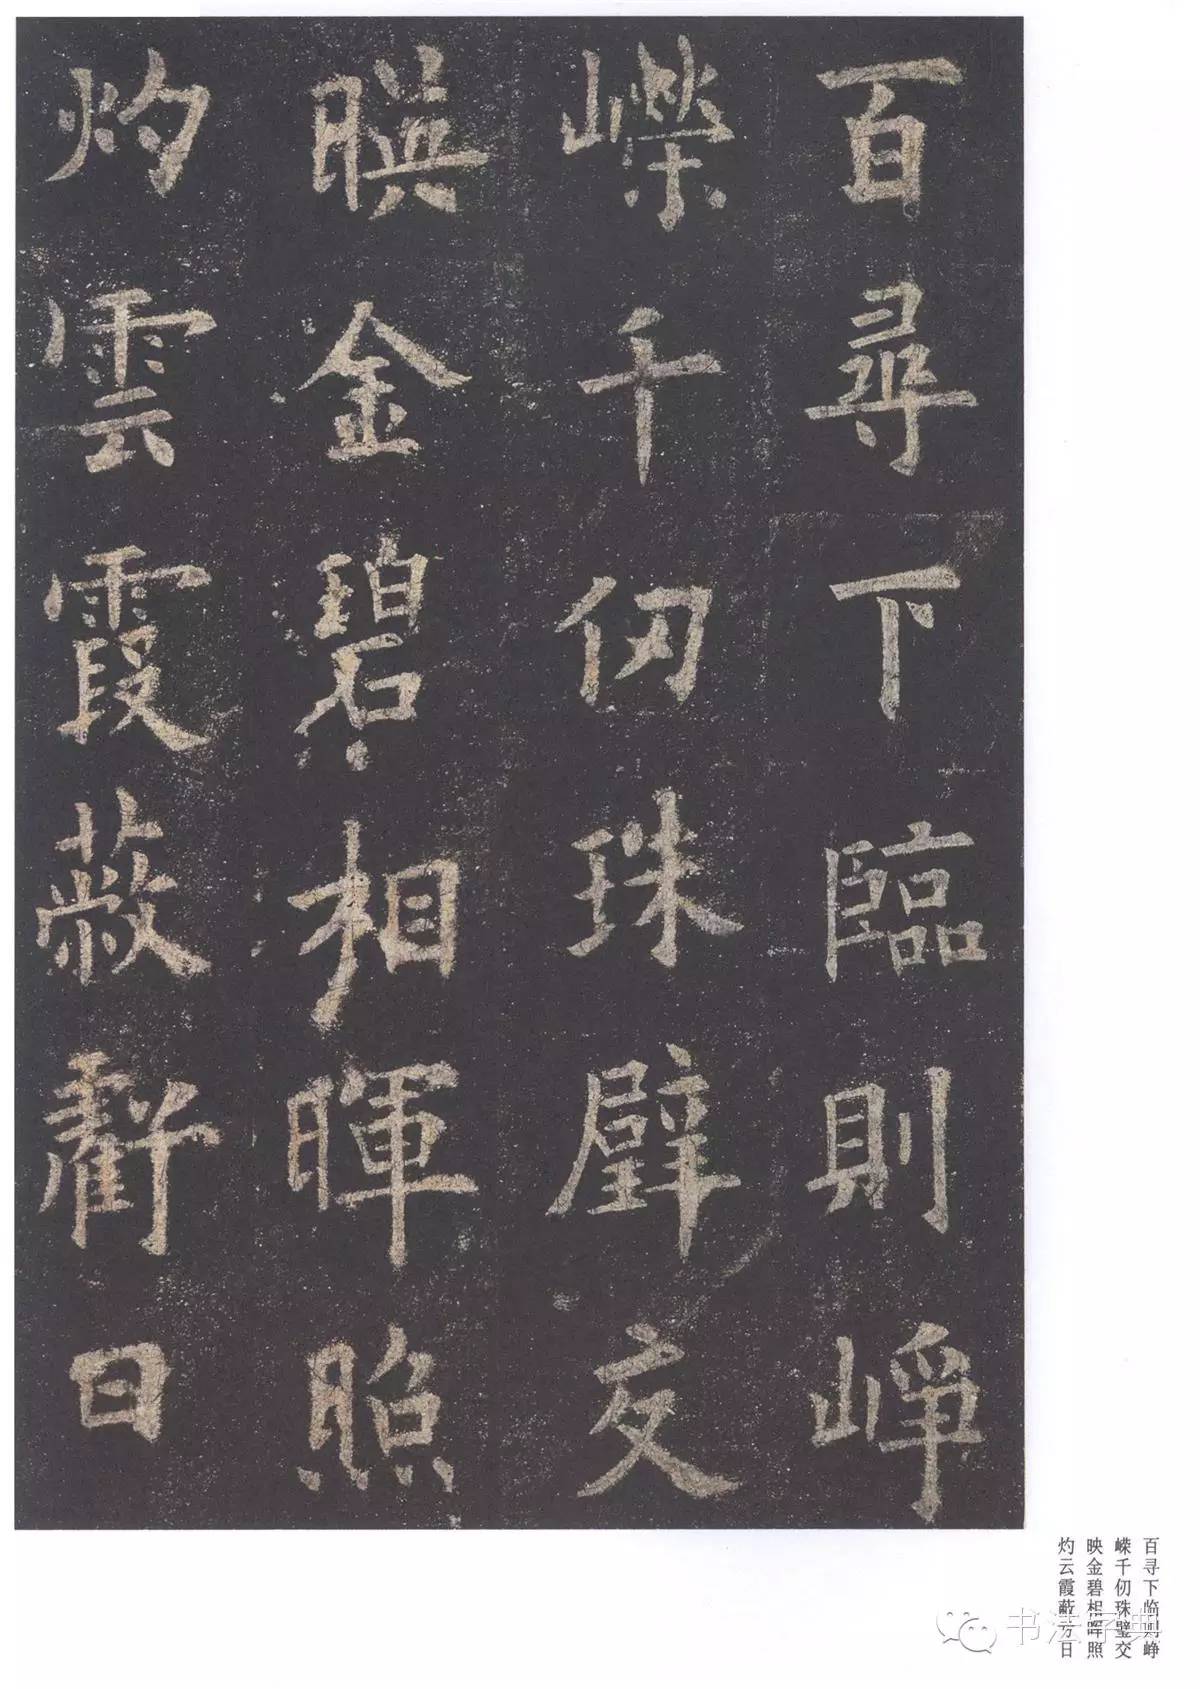 百尋下臨則崢
嶸千仞珠璧交
暎金碧相暉照
灼雲霞蔽虧日
百寻下临则峥
嵘千仞珠璧交
映金碧相晖照
灼云霞蔽亏日
书法字典